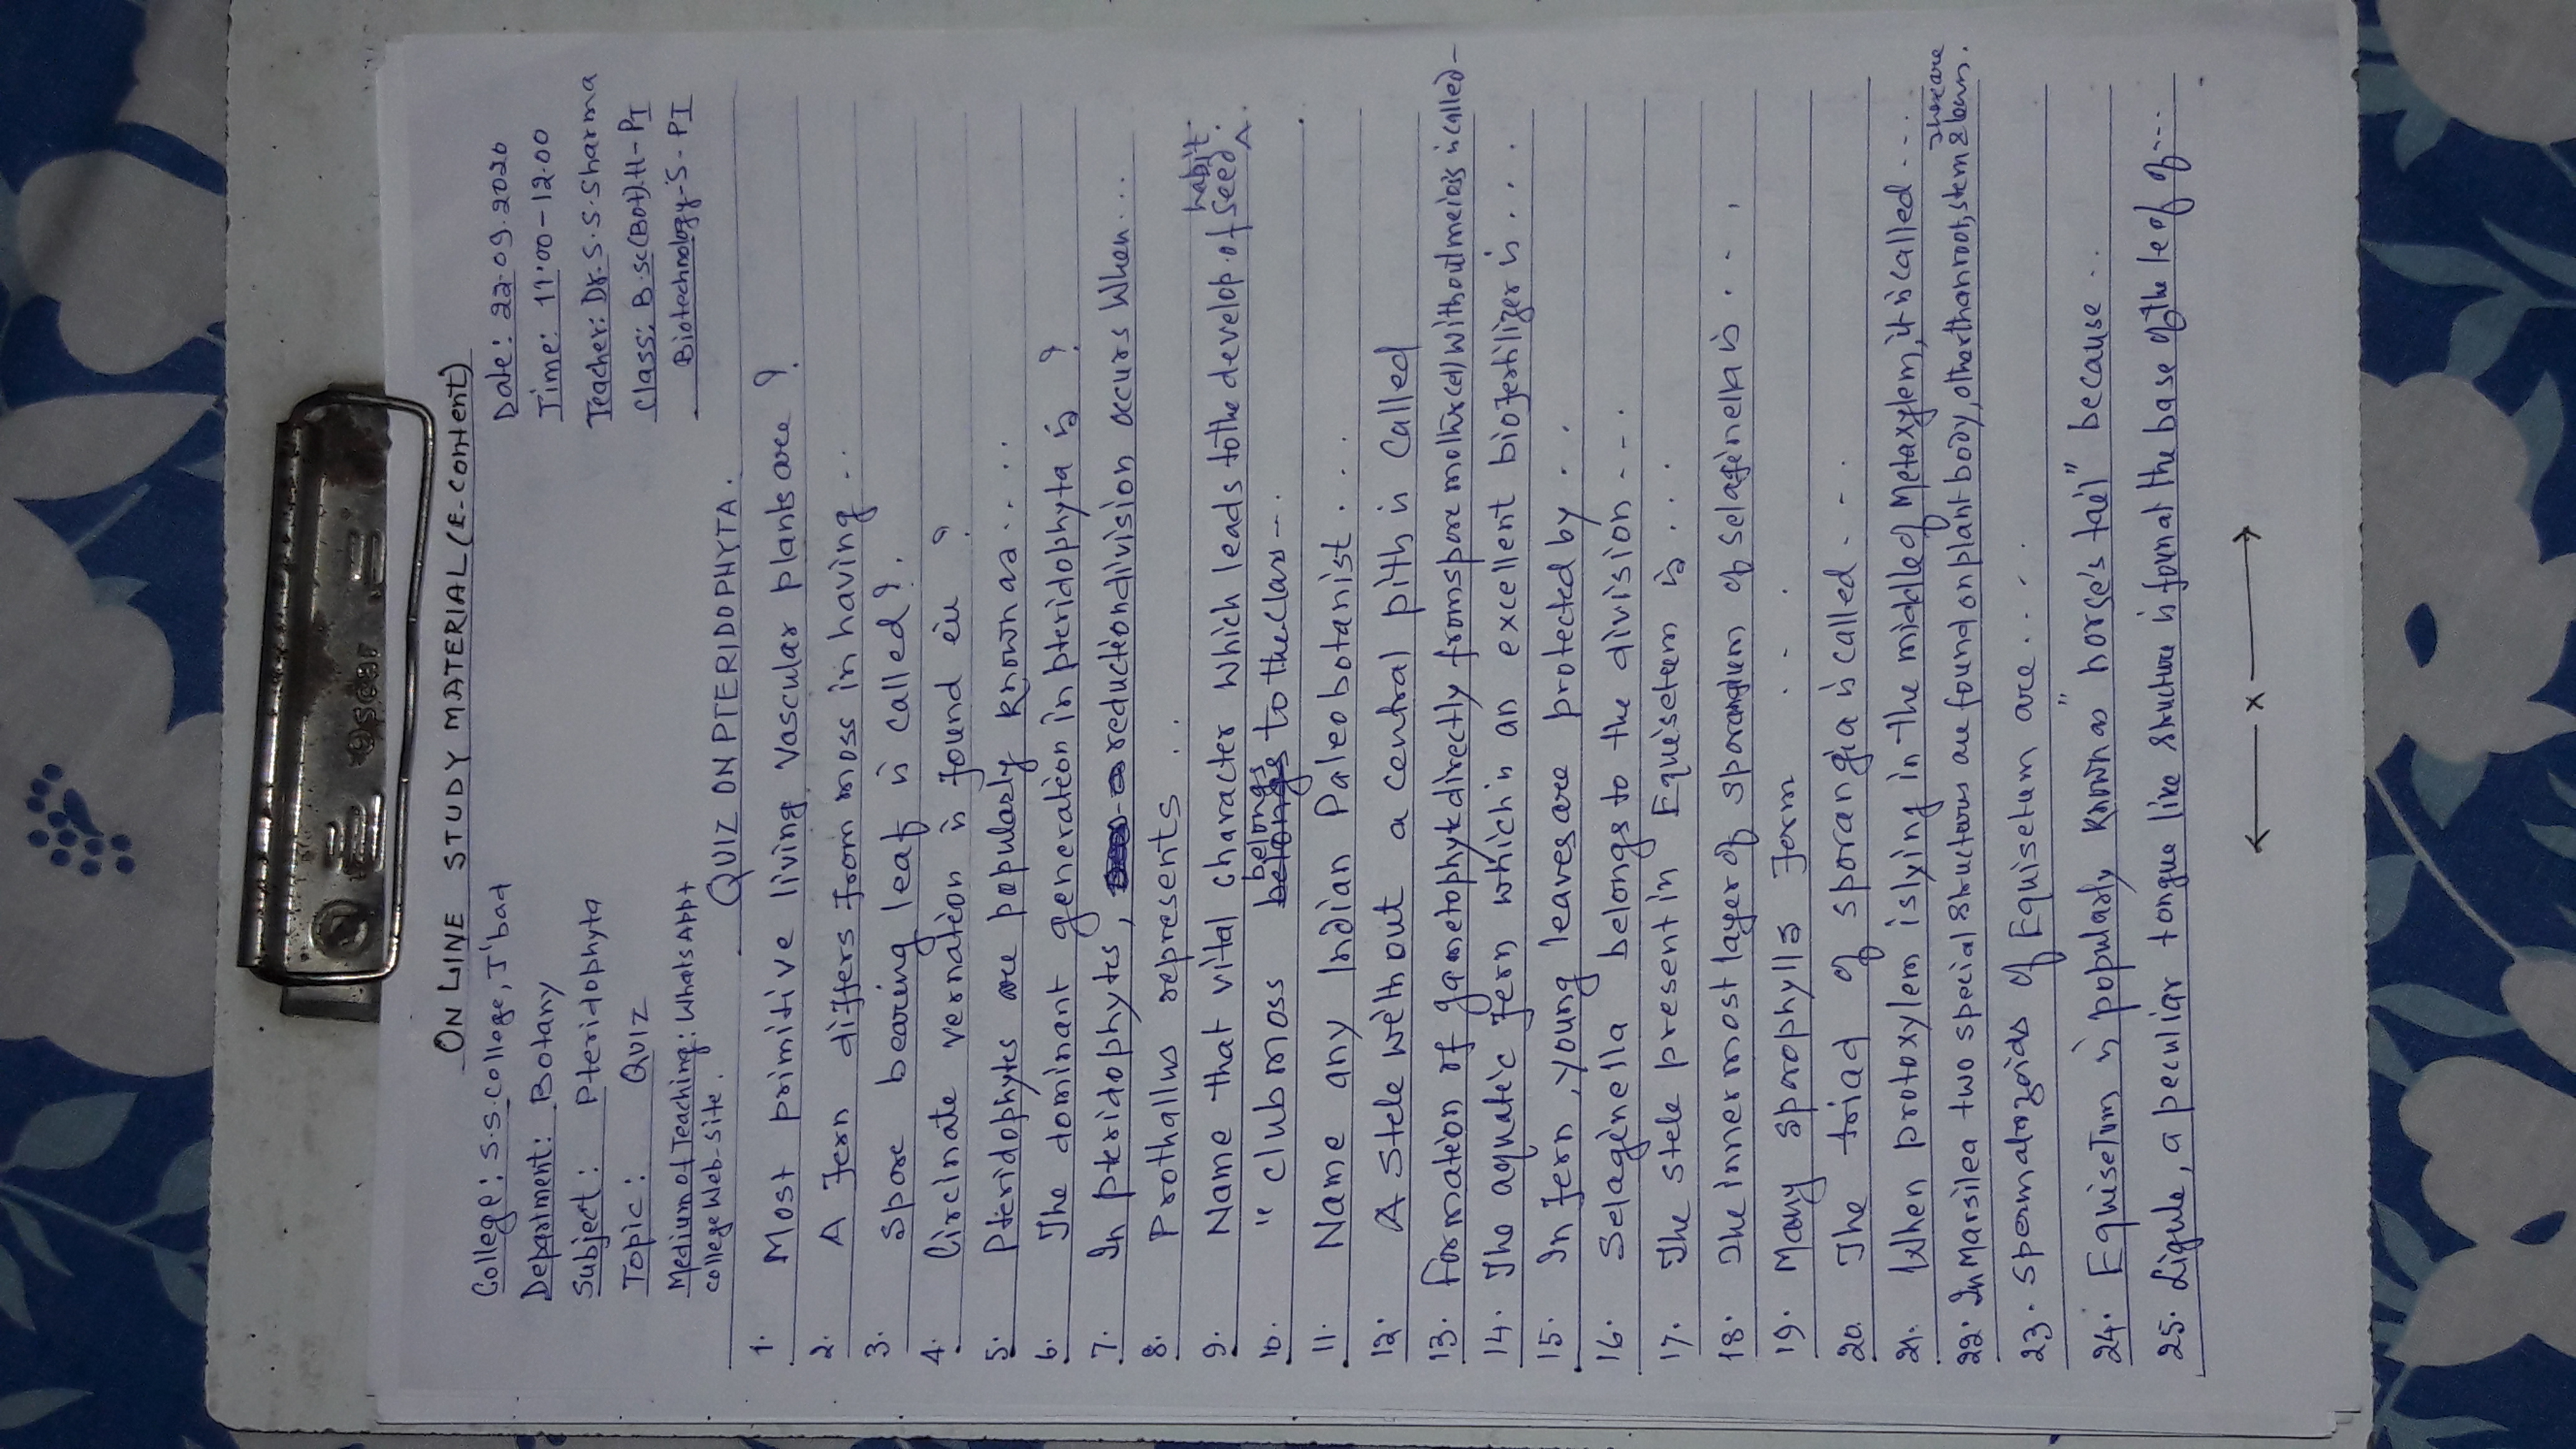 ON LINE STUDY MATERIAL (E-content)
College: S.S. College, J'bad
Date: 22.09.2020
Department: Botany
Time: 11.00-12.00
Subject: Pteridophyta
Teacher: Dr. S.S. Sharma
Topic: QUIZ
Class: B.Sc(Bot).H-PI
Medium of Teaching: WhatsApp+
Biotechnology-S-PI
college Web-site.
QUIZ ON PTERIDOPHYTA.
1. Most primitive living vascular plants are ?
2. A fern differs from moss in having ..
3. Spore bearing leaf is called ?.
4. Circinate vernation is found in ?
5. Pteridophytes are popularly known as ....
6. The dominant generation in pteridophyta is ?
7. In pteridophytes, reduction division occurs when...
8. Prothallus represents ..
9. Name that vital character which leads to the develop. of seed habit.
10. "club moss belongs to the class-..
11. Name any Indian Paleobotanist ....
12. A stele without a central pith is called
13. Formation of gametophyte directly from spore mother cell without meiosis is called-
14. The aquatic fern which is an excellent biofertilizer is ....
15. In fern, young leaves are protected by ..
16. Selaginella belongs to the division - - .
17. The stele present in Equisetum is ...
18. The innermost layer of sporangium of selaginella is ....
19. Many sporophylls form ...
20. The triad of sporangia is called - - .
21. When protoxylem is lying in the middle of Metaxylem, it is called ...
22. In Marsilea two special structures are found on plant body, other than root, stem & leaves. These are
23. Spermatozoids of Equisetum are....
24. Equisetum is popularly known as "horse's tail" because ..
25. Ligule, a peculiar tongue like structure is foun at the base of the le of ...
x